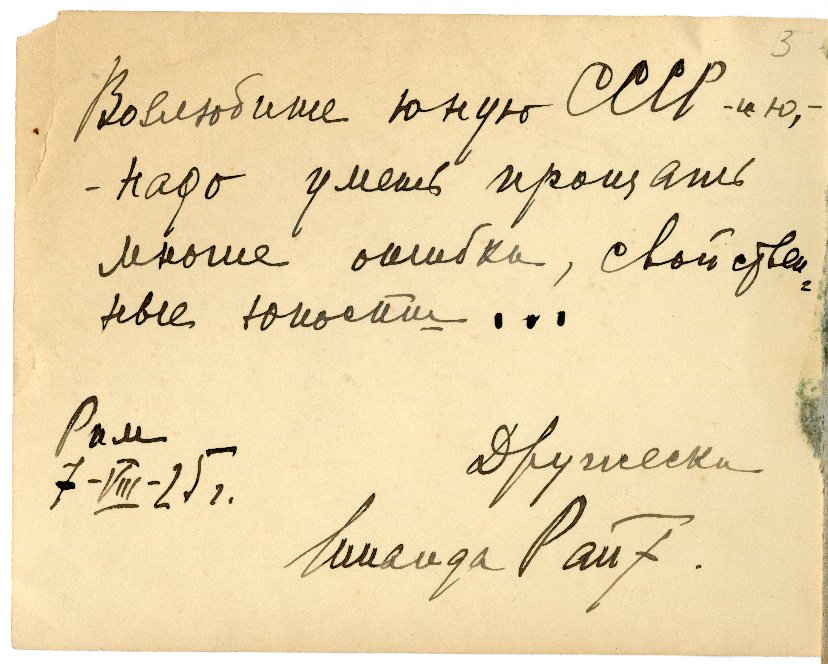 3
Возлюбите юную СССР-ию,-
- надо уметь прощать
многие ошибки, свойствен-
ные юности...
Рим
7-VIII-25 г.
Дружески